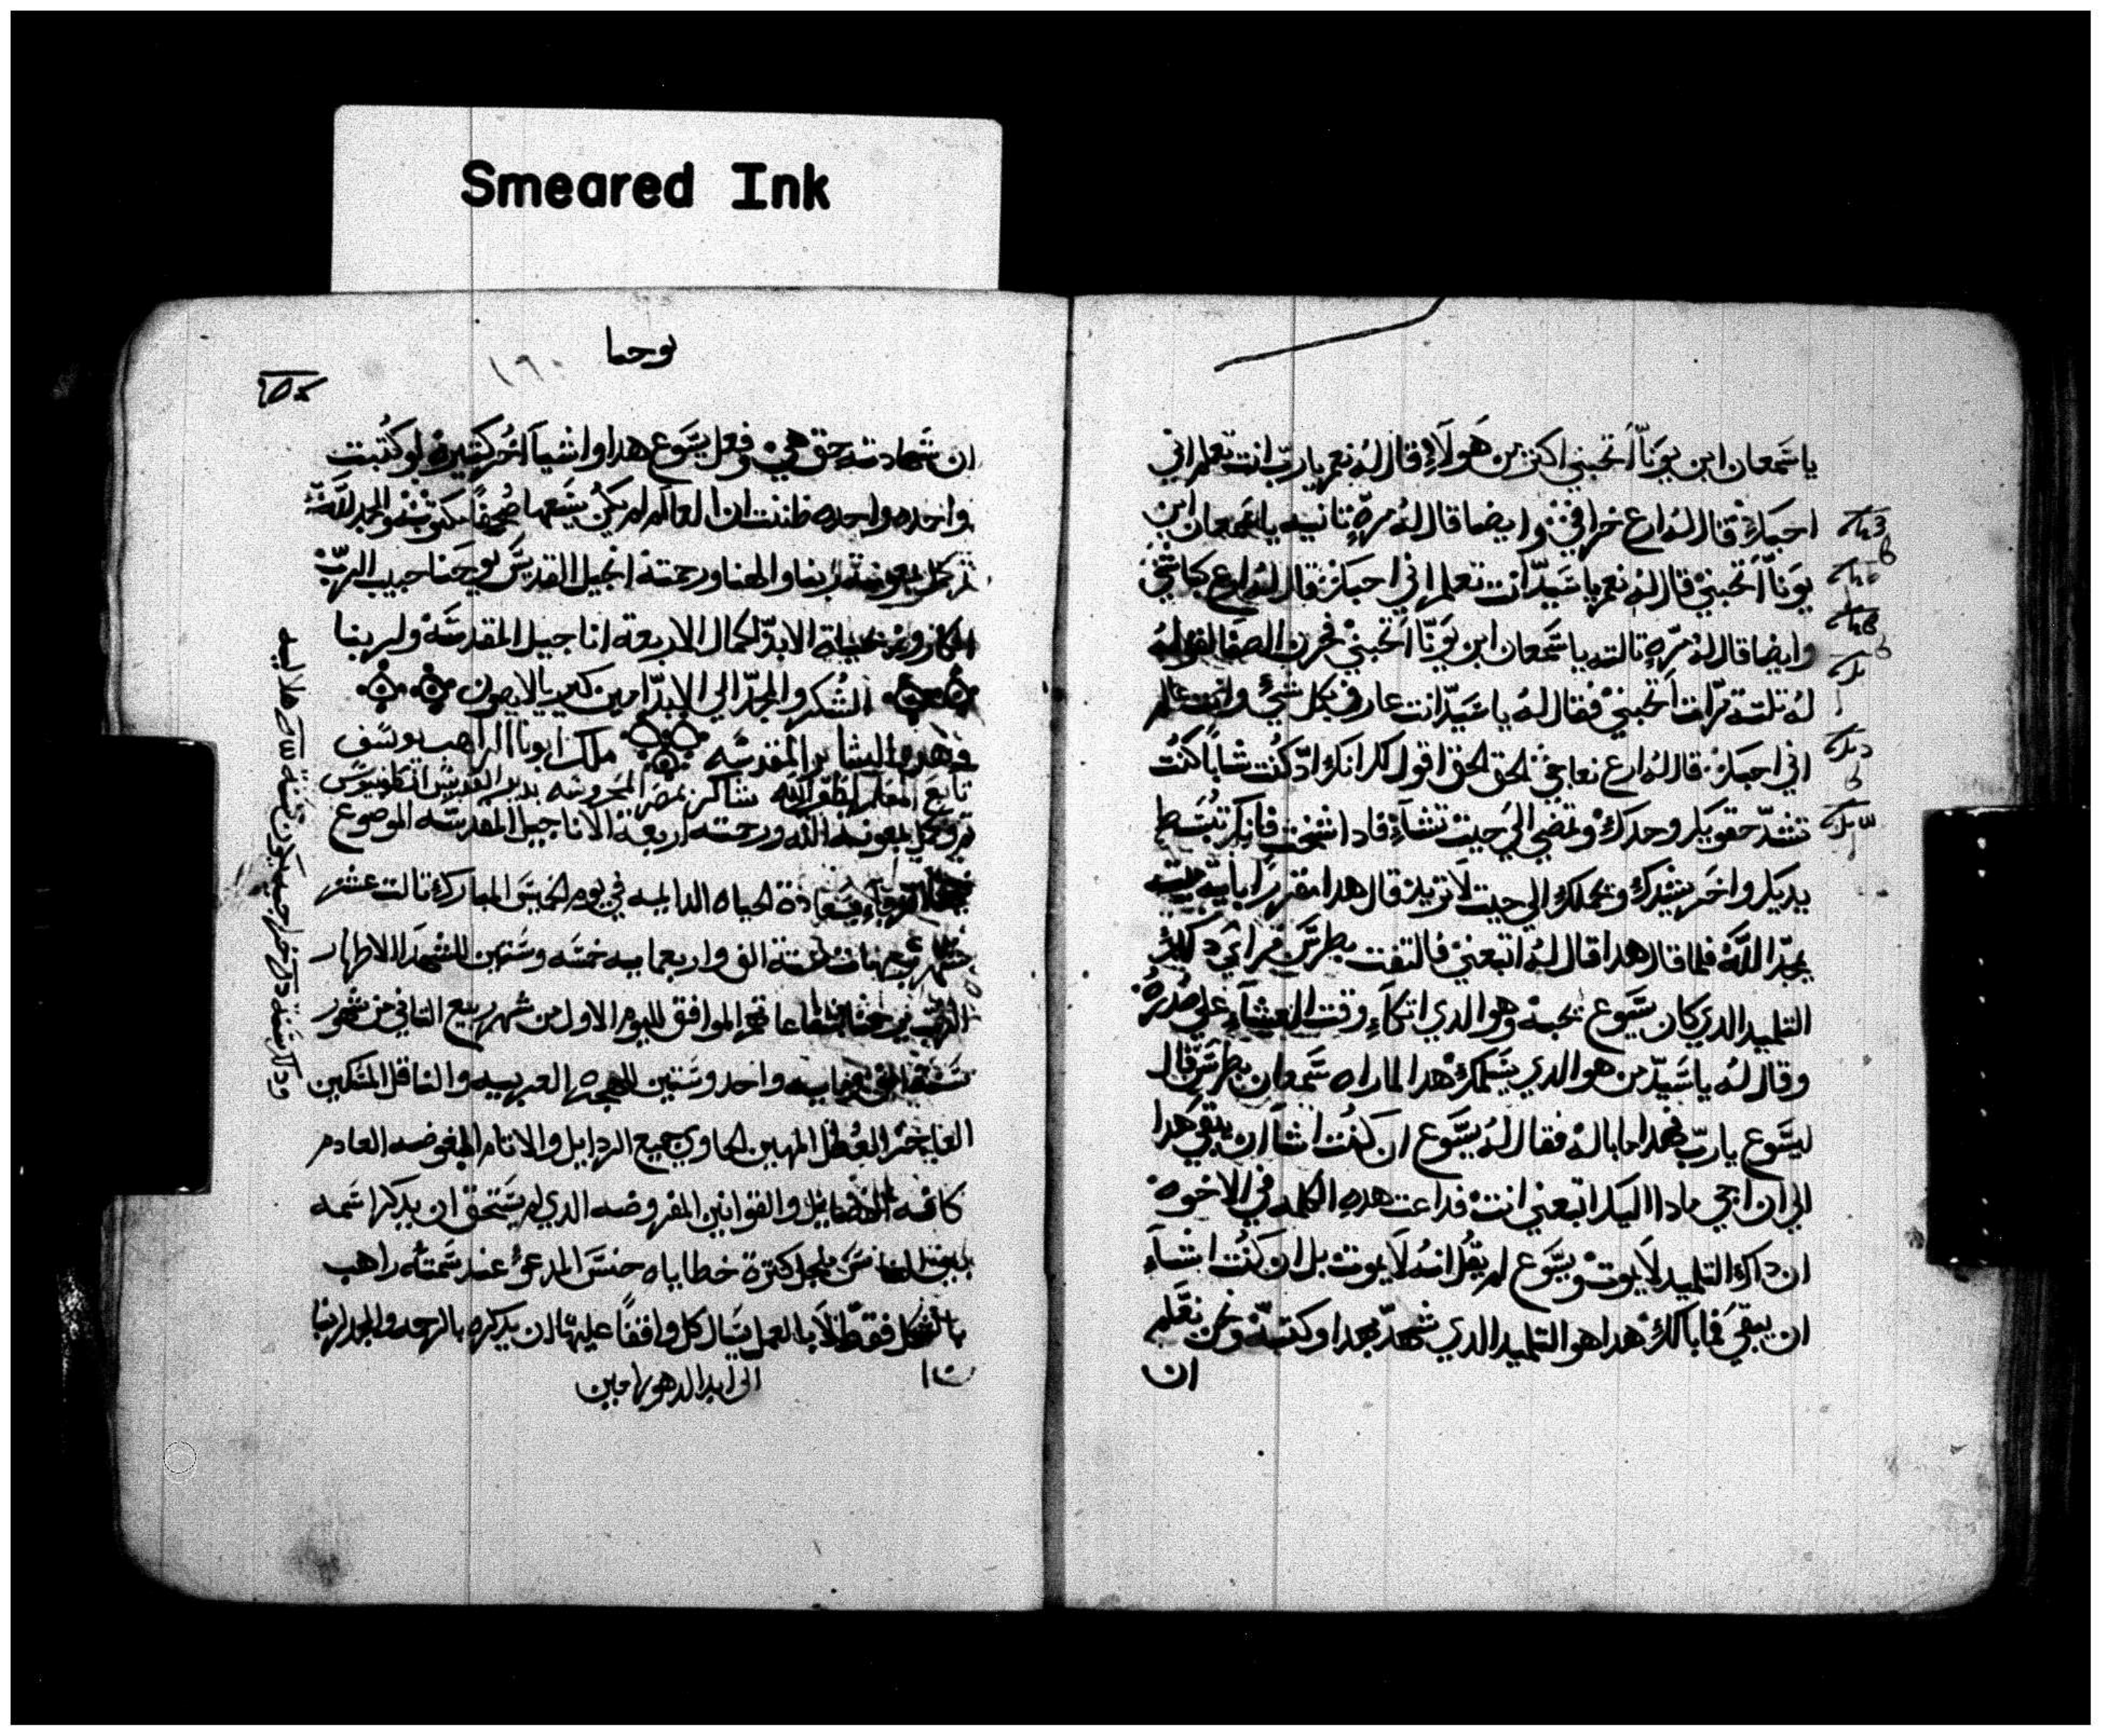 Smeared Ink
ياسمعان ابن يونا اتحبني اكثر من هولاء قال له نعم يارب انت تعلم اني
احبك قال له ارع خرافي وايضا قال له مرة تانيه ياسمعان ابن
يونا اتحبني قال له نعم ياسيد انت تعلم اني احبك قال له ارع كباشي
وايضا قال له مرة تالته ياسمعان ابن يونا اتحبني فحزن الصفا لقوله
له تلتة مرات اتحبني فقال له ياسيد انت عارف بكل شي وانت عالم
اني احبك قال له ارع نعاجي الحق الحق اقول لك انك اد كنت شابا كنت
تشد حقويك وحدك وتمضي الي حيت تشاء فادا شخت فانك تبسط
يديك واخر يشدك ويحملك الي حيت لا تريد قال هدا مخبرا باية ميتة
يمجد الله فلما قال هدا قال له اتبعني فالتفت بطرس فراي دلك
التلميد الدي كان يسوع يحبه وهو الدي اتكاء وقت العشاء علي صدره
وقال له ياسيد من هو الدي يسلمك هدا لما راه سمعان بطرس قال
ليسوع يارب فهدا ما باله فقال له يسوع ان كنت اشا ان يبقي هدا
الي ان اجي مادا اليك اتبعني انت فداعت هده الكلمه في الاخوه
ان داك التلميد لا يموت ويسوع لم يقل انه لا يموت بل ان كنت اشاء
ان يبقي فما بالك هدا هو التلميد الدي شهد بهدا وكتبه ونحن نعلم
ان
يوحنا
١٦٠
ان شهادته حق هي وفعل يسوع هدا واشيا اخر كتيره لو كتبت
واحده واحده ظننت ان العالم لم يكن يسعها صحفا مكتوبه والمجد لله
تم كمل بمعونة ربنا والهنا ورحمته انجيل القديس يوحنا حبيب الرب
الابد لكمال الاربعة اناجيل المقدسة ولربنا
الشكر والمجد الي الابد امين كيرياليصون
وهده البشاير المقدسه ملك ابونا الراهب يوسف
تابع شاكر بمصر المحروسه بدير القديس انطونيوس
تم وكمل بمعونة الله ورحمته اربعة الاناجيل المقدسه الموضوع
الحياه الدايمه في يوم الخميس المبارك تالت عشر
سنة الف واربعمايه خمسه وستين للشهدا الاطهار
الموافق لليوم الاول من شهر ربيع التاني من شهور
سنة الف ومايه واحد وستين للهجره العربيه والناقل المسكين
المهين الحاوي جميع الردايل والاتام المفوضه العادم
كافة الفضايل والقوانين المفروضه الدي لم يستحق ان يدكر اسمه
بين الناس من اجل كترة خطاياه حنس المدعو عند سمته راهب
بالشكل فقط لا بالعمل يسال كل واقفا عليها ان يدكره بالرحمه والمجد لربنا
الي ابد الدهور امين